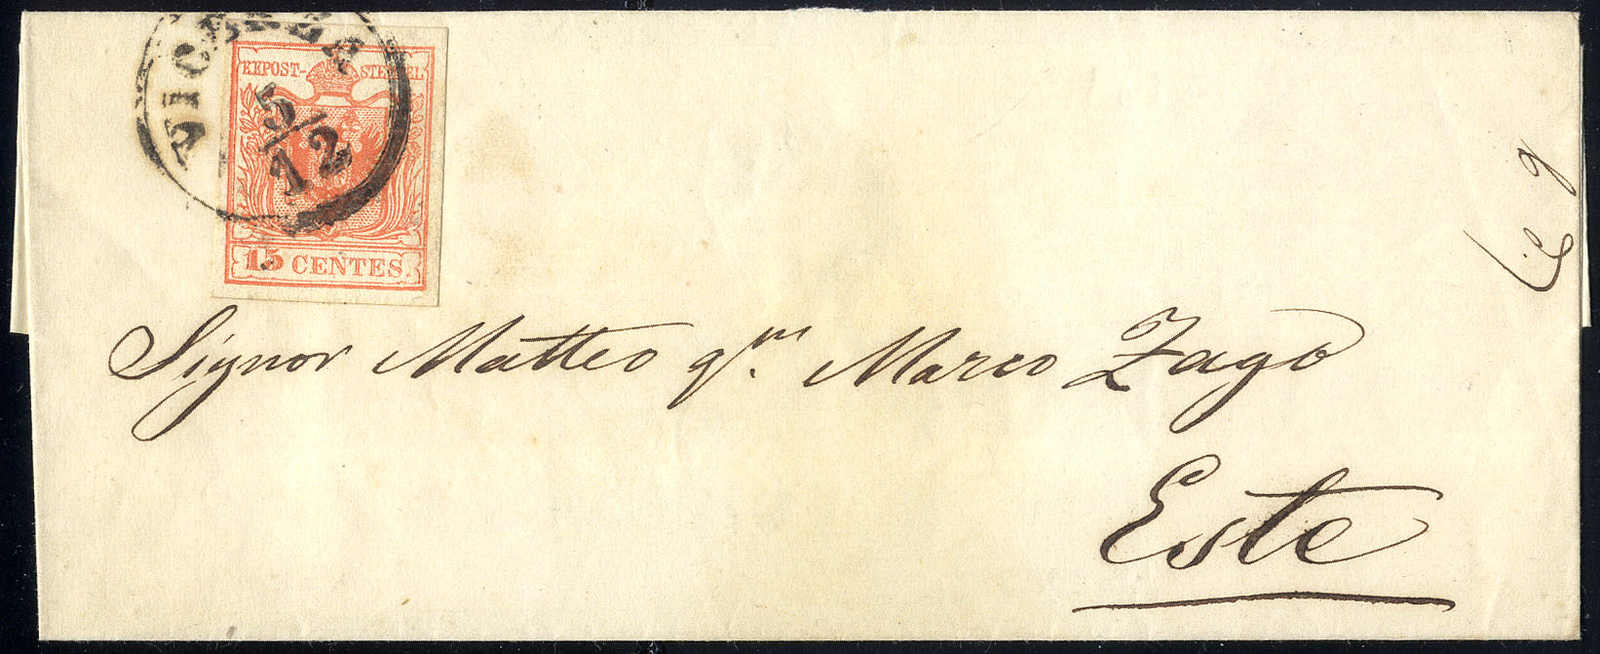 VICENZA
5/12
KKPOST-STEMPEL
15 CENTES.
Signor Matteo qm. Marco Zago
Este